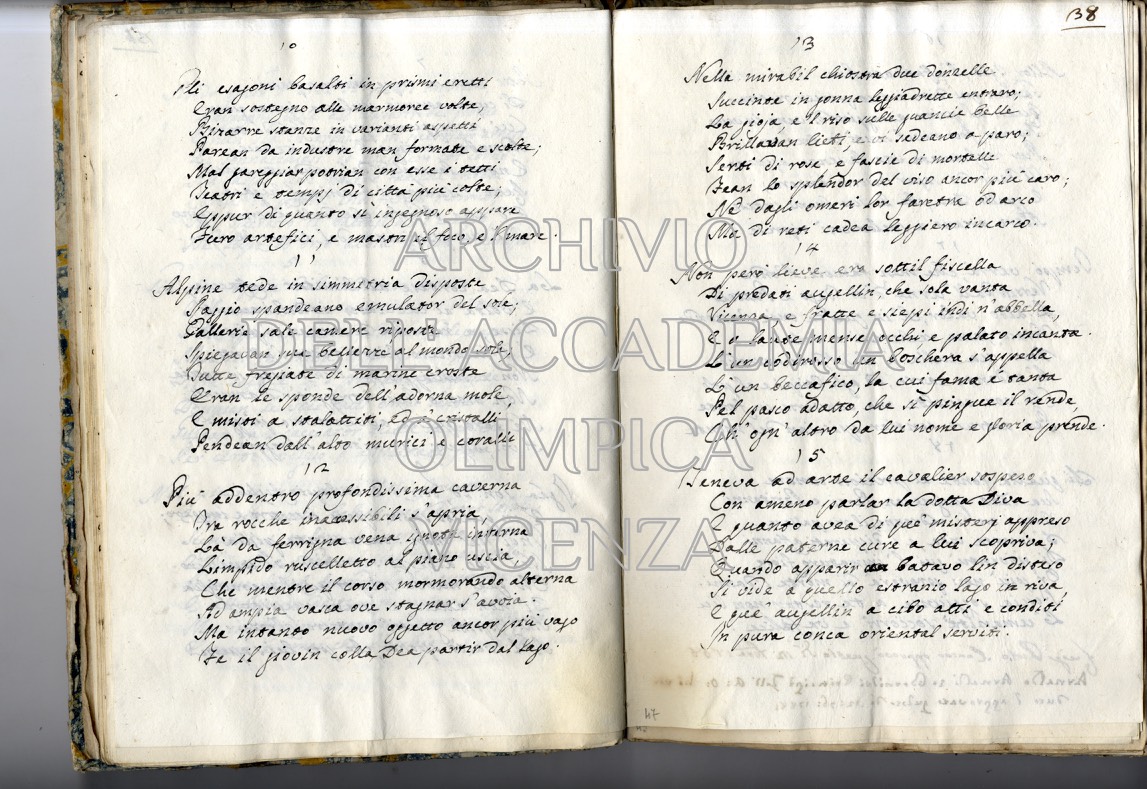 10
Gli esagoni basalti in prismi eretti
Eran sostegno alle marmoree volte;
Bizarre stanze in varianti aspetti
Parean da industre man formate e scolte;
Mal pareggiar potrian con esse i tetti
Teatri e tempj di città più colte;
Eppur di quanto sì ingegnoso appare
Furo artefici, e mastri il foco, e 'l mare.
11
Alpine tede in simmetria disposte
Raggio spandeano emulator del sole;
Gallerie sale camere riposte
Spiegavan sue bellezze al mondo sole,
Tutte fregiate di marine croste
Eran le sponde dell'adorna mole,
E misti a stalattiti, ed a' cristalli
Pendean dall'alto murici e coralli
12
Più addentro profondissima caverna
Tra rocche inaccessibili s'apria,
Là da ferrigna vena ignota interna
Limpido ruscelletto al piano uscia,
Che mentre il corso mormorando alterna
Ad ampia vasca ove stagnar s'avvia.
Ma intanto nuovo oggetto ancor più vago
Fe il giovin colla Dea partir dal lago.
47
38
13
Nella mirabil chiostra due donzelle
Succinte in gonna leggiadrette entraro;
La gioja, e 'l riso sulle guancie belle
Brillavan lieti, e vi sedeano a paro;
Serti di rose, e fascie di mortelle
Fean lo splendor del viso ancor più caro;
Nè dagli omeri lor faretra od arco
Ma di reti cadea leggiero incarco.
14
Non però lieve era sottil fiscella
Di predati augellin, che sola vanta
Vicenza, e fratte e siepi indi n'abbella,
E a laute mense occhi e palato incanta.
Là un codirosso un boschera s'appella
Là un beccafico, la cui fama è tanta
Pel pasco adatto, che sì pingue il rende,
Ch'ogn'altro da lui nome e gloria prende.
15
Teneva ad arte il cavalier sospeso
Con ameno parlar la dotta Diva
E quanto avea di que' misterj appreso
Dalle paterne cure a lui scopriva;
Quando apparir batavo lin disteso
Si vide a quello estranio lago in riva,
E que' augellin a cibo atti e conditi
In pura conca oriental serviti.
ARCHIVIO
DELL'ACCADEMIA
OLIMPICA
VICENZA